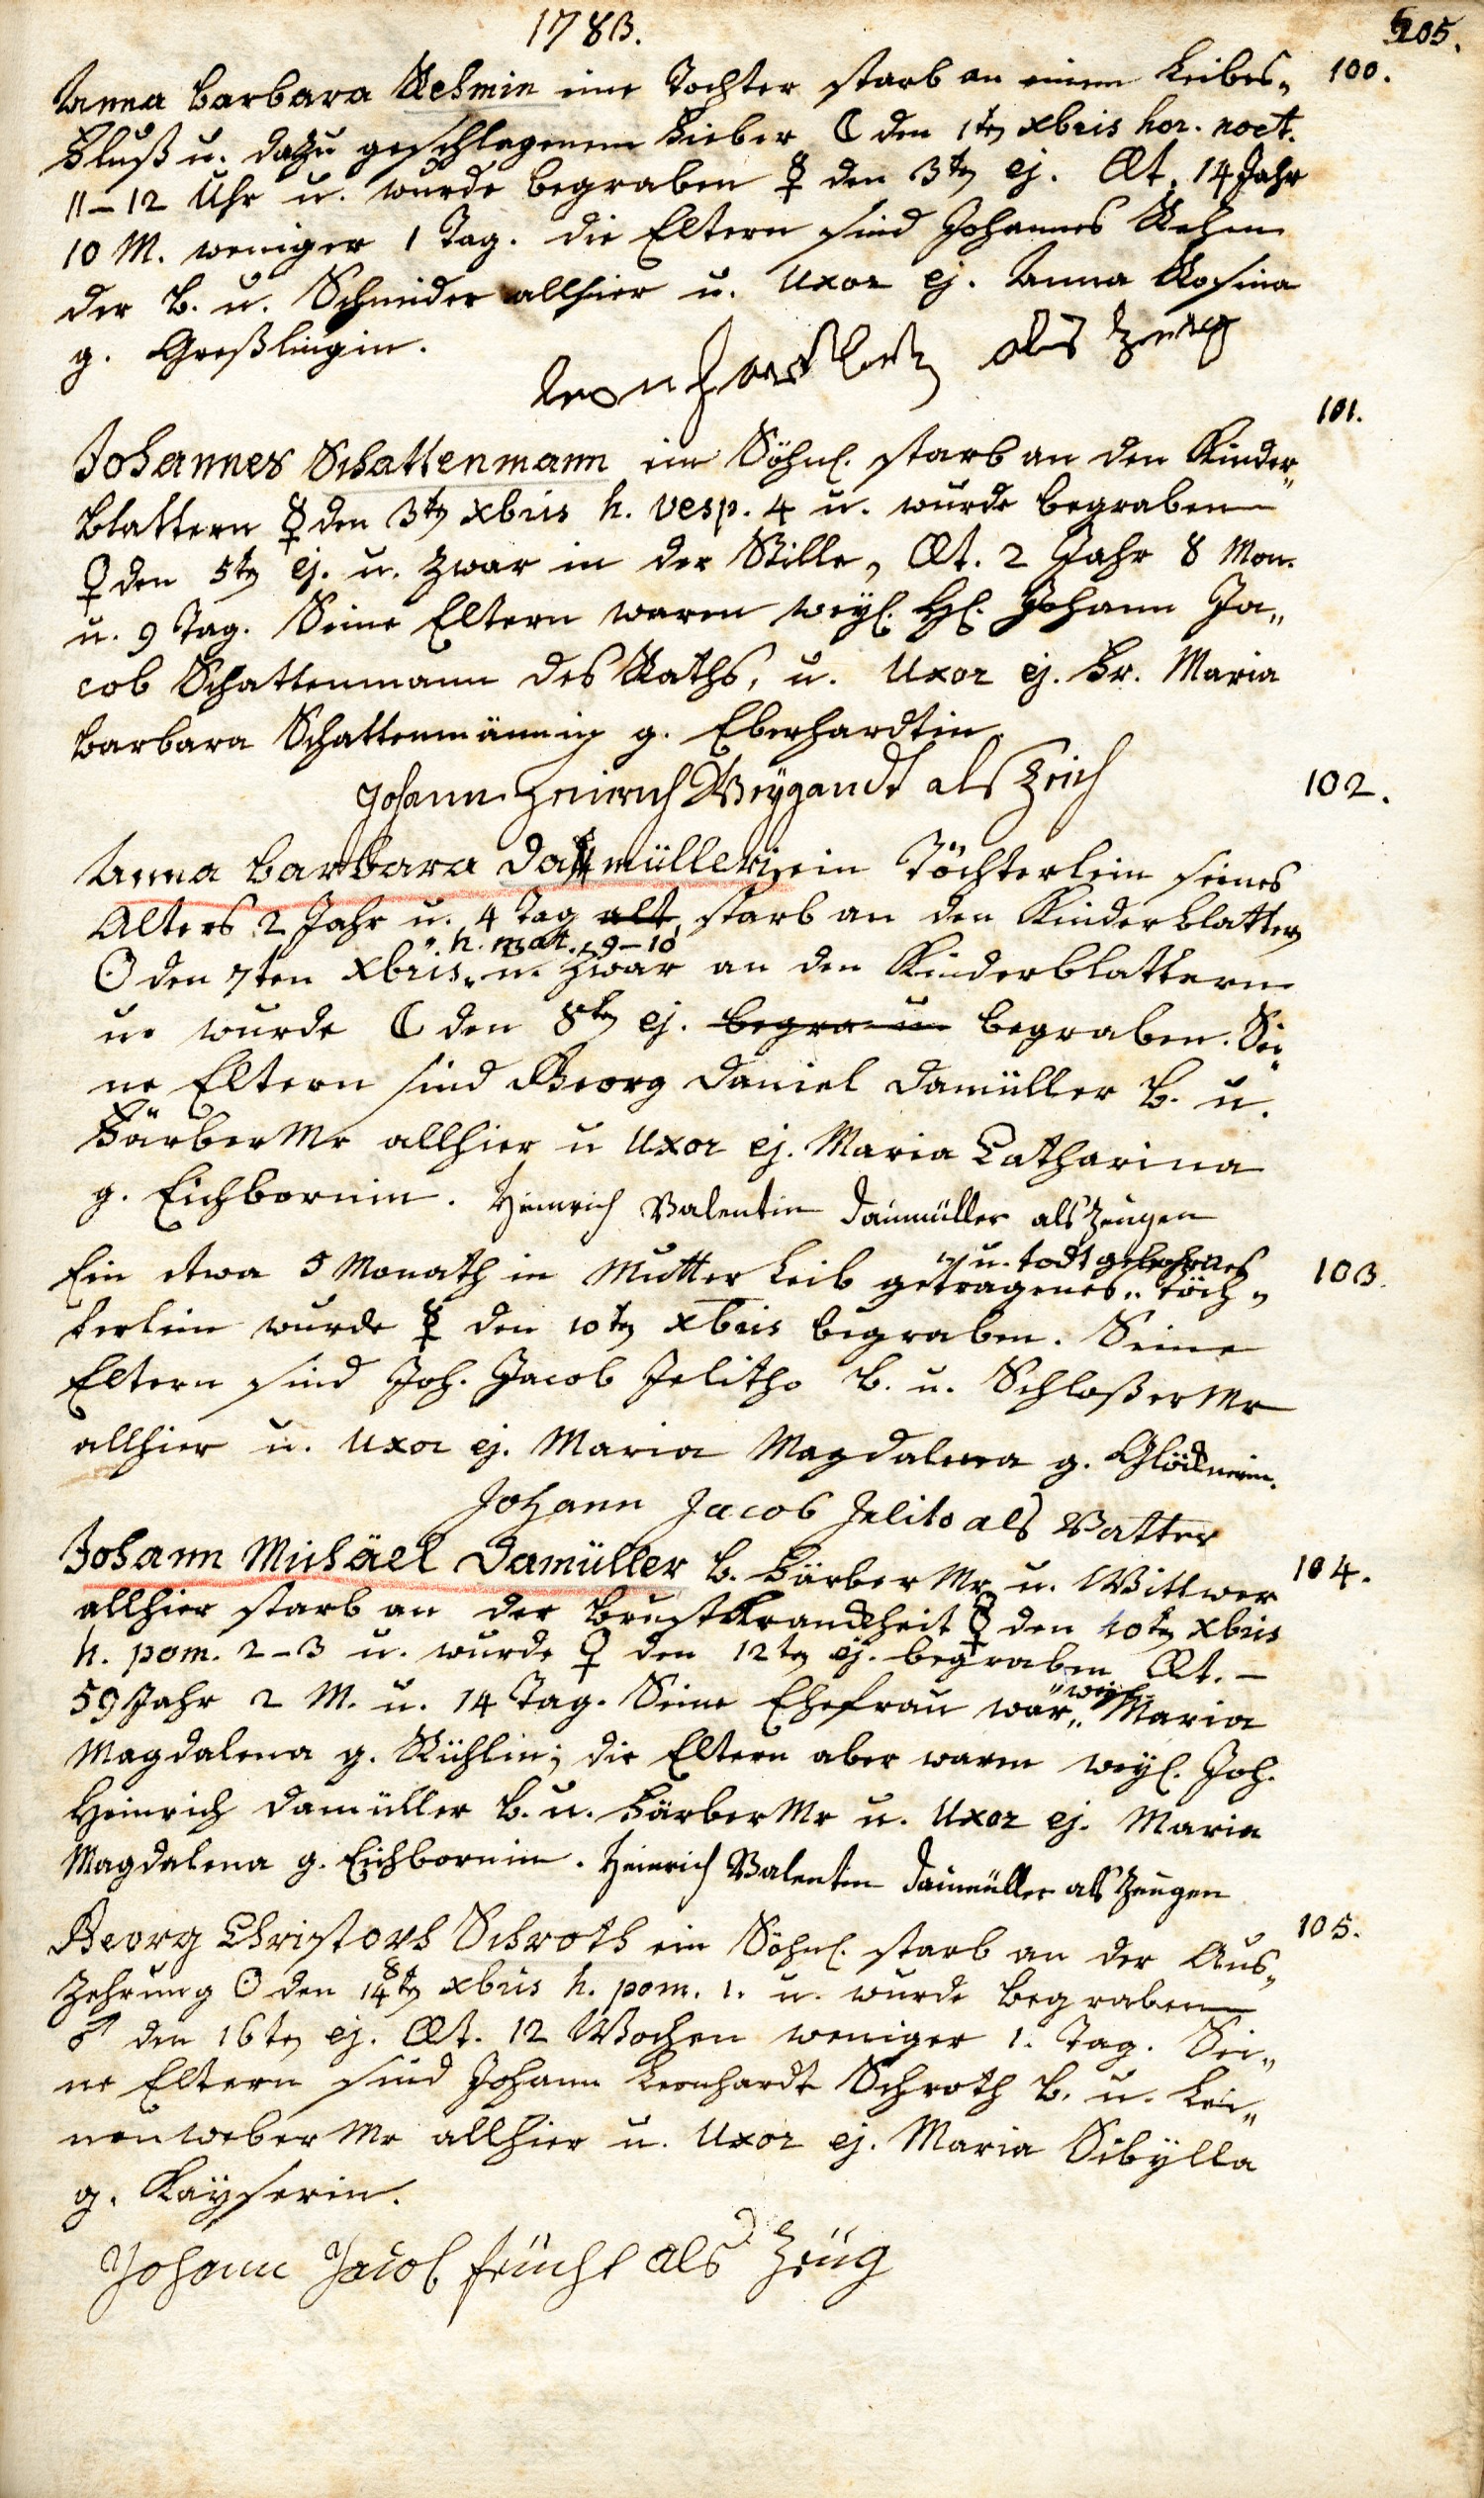 1783.
205.
Anna Barbara Rehmin eine Tochter starb an einem Leibes-
100.
Fluß u. dazu geschlagenem Fieber ☾ den 1ten xbris hor. noct.
11–12 Uhr u. wurde begraben ☿ den 3ten ej. Æt. 14 Jahr
10 M. weniger 1 Tag. die Eltern sind Johannes Rehm
der B. u. Schneider allhier u. Uxor ej. Anna Rosina
g. Greßlingin.
als Zeug
101.
Johannes Schattenmann ein Söhnl. starb an den Kinder-
blattern ☿ den 3ten xbris h. vesp. 4 u. wurde begraben
♀ den 5ten ej. u. zwar in der Stille, Æt. 2 Jahr 8 Mon.
u. 9 Tag. Seine Eltern waren weyl. H. Johann Ja-
cob Schattenmann des Raths, u. Uxor ej. Fr. Maria
Barbara Schattenmännin g. Eberhardtin.
Johann Heinrich Weygandt als Zeich
102.
Anna Barbara Damüllerin ein Töchterlein seines
Alters 2 Jahr u. 4 Tag alt, starb an den Kinderblattern
„ h. mat. 9–10
☉ den 7ten xbris „ u. zwar an den Kinderblattern
u. wurde ☾ den 8ten ej. begraben. Sei-
ne Eltern sind Georg Daniel Damüller B. u.
Färber Mr allhier u Uxor ej. Maria Catharina
g. Eichbornin. Heinrich Valentin Daumüller als Zeugen
„ u. todt gebohrnes
Ein etwa 5 Monath in Mutter Leib getragenes „ töch-
103.
terlein wurde ☿ den 10ten xbris begraben. Seine
Eltern sind Joh. Jacob Jelitho B. u. Schloßer Mr
allhier u. Uxor ej. Maria Magdalena g. Glöcknerin.
Johann Jacob Jelito als Vatter
Johann Michäel Damüller B. Färber Mr u. Wittwer
104.
allhier starb an der Brustkranckheit ☿ den 10ten xbris
h. pom. 2–3 u. wurde ♀ den 12ten ej. begraben Æt. –
„ weyl.
59 Jahr 2 M. u. 14 Tag. Seine Ehefrau war „ Maria
Magdalena g. Kühlin; die Eltern aber waren weyl. Joh.
Heinrich Damüller B. u. Färber Mr u. Uxor ej. Maria
Magdalena g. Eichbornin. Heinrich Valentin Daumüller als Zeugen
Georg Christoph Schroth ein Söhnl. starb an der Aus-
105.
zehrung ☉ den 14ten xbris h. pom. 1. u. wurde begraben
♂ den 16ten ej. Æt. 12 Wochen weniger 1. Tag. Sei-
ne Eltern sind Johann Leonhardt Schroth B. u. Lei-
nenweber Mr allhier u. Uxor ej. Maria Sibÿlla
g. Kayserin.
Johann Jacob als Zeüg